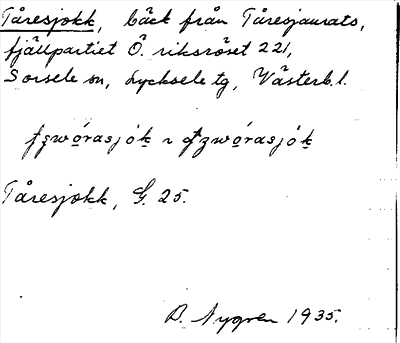 Tåresjokk, bäck från Tåresjaurats,
fjällpartiet Ö. riksröset 221,
Sorsele sn, Lycksele tg, Västerb. l.
Tåresjokk, G. 25.
B. Nygren 1935.